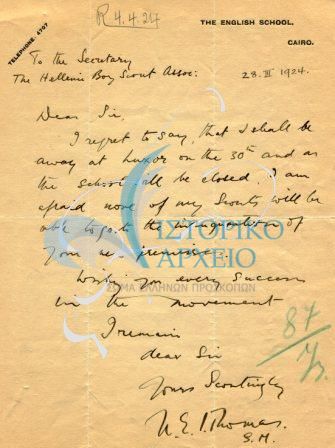 R 4.4.24
THE ENGLISH SCHOOL,
CAIRO.
TELEPHONE 4707
To the Secretary
The Hellenic Boy Scout Assoc:
28. III 1924.
Dear Sir,
I regret to say, that I shall be
away at Luxor on the 30th and as
the school will be closed, I am
afraid none of my Scouts will be
able to go to the inauguration of
your new premises.
Wishing you every success
in the movement
I remain
dear Sir
Yours Scoutingly
S.M.
ΙΣΤΟΡΙΚΟ
ΑΡΧΕΙΟ
ΣΩΜΑ ΕΛΛΗΝΩΝ ΠΡΟΣΚΟΠΩΝ
87